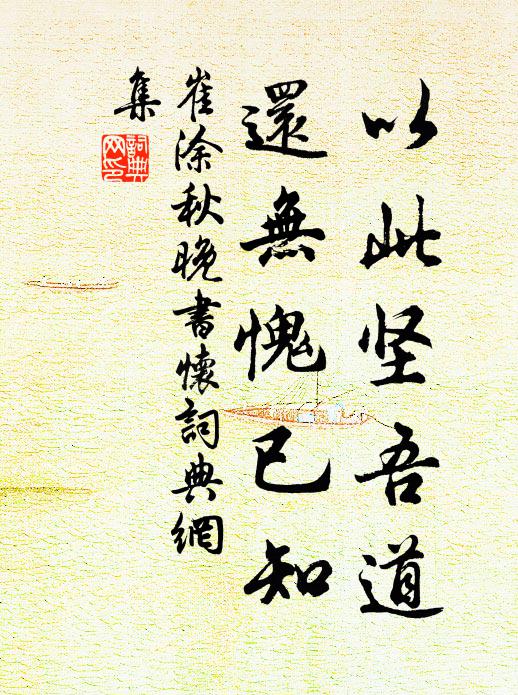 以此坚吾道
還無愧已知
崔涂秋晚書懷詞典網
集
詞典网印